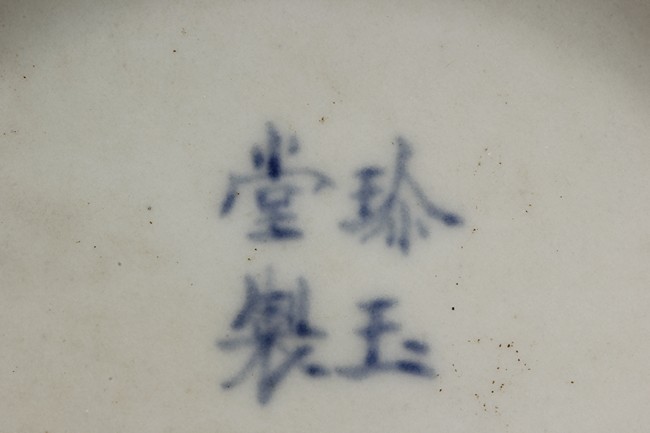 珍玉
堂製